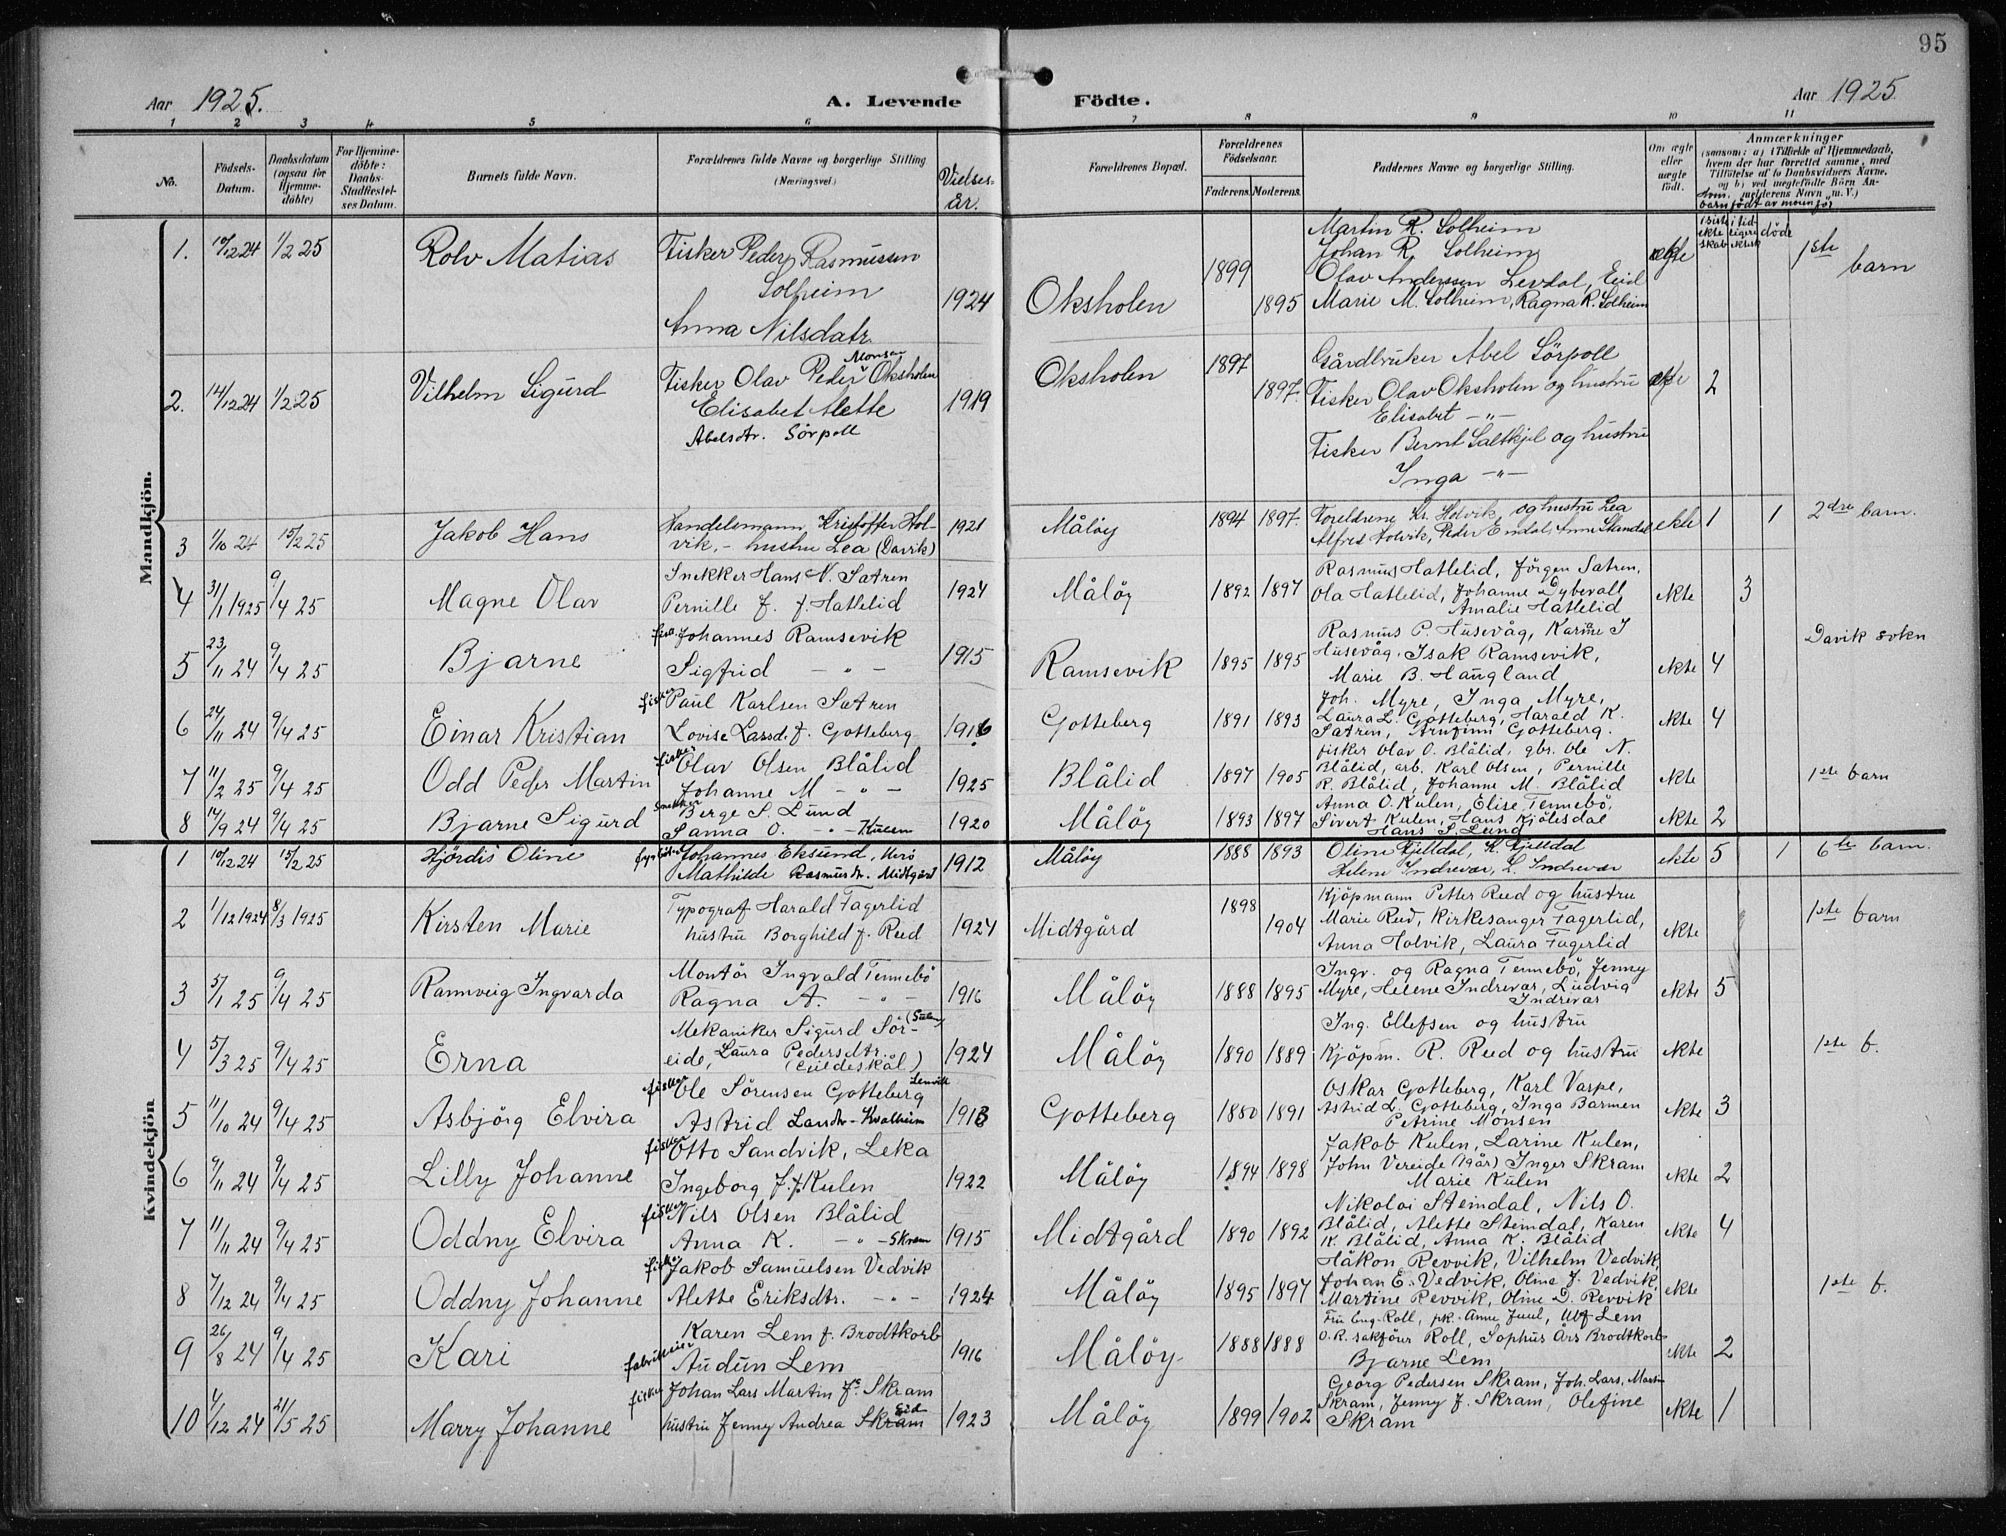 95
Aar 1925.
A. Levende
Födte.
Aar 1925
1 2 3 4 5 6 7 8 9 10 11
No.
Födsels-Datum.
Daabsdatum (ogsaa for Hjemme-döbte)
For Hjemme-döbte: Daabs-Stadfæstel-ses Datum.
Barnets fulde Navn.
Forældrenes fulde Navne og borgerlige Stilling
(Næringsvei.)
Vielses-år.
Forældrenes Bopæl.
Forældrenes Födselsaar.
Faderens. Moderens.
Faddernes Navne og borgerlige Stilling.
Om ægte eller uægte födt.
Anmærkninger
(saasom: a) i Tilfælde af Hjemmedaab, hvem der har forrettet samme, med Tilföielse af to Daabsvidners Navne, og b) ved uægtefödte Börn Anmelderens Navn m. V.)
barn födt av moren för
i siste ekteskab
i tidligere ektesk
döde
Mandkjön.
1. 10/12 24 1/2 25 Rolv Matias Fisker Peder Rasmussen
Solheim
Anna Nilsdatr. 1924 Oksholen 1899 1895
Martin R. Solheim
Johan R. Solheim
Olav Anderssen Levdal, Eid
Marie M. Solheim, Ragna R. Solheim
ægte 1ste barn
2. 14/12 24 1/2 25 Vilhelm Sigurd Fisker Olav Peder Monsen Oksholen
Elisabet Alette
Abelsdtr. Sörpoll 1919 Oksholen 1897 1897.
Gårdbruker Abel Sörpoll
Fisker Olav Oksholen og hustru
Elisabet -"-
Fisker Bernt Saltkjel og hustru
Inga -"-
ekte 2
3 1/10 24 15/2 25 Jakob Hans Handelsmann Kristoffer Hol-
vik, - hustru Lea (Davik) 1921 Måløy 1894 1897.
Foreldrene Kr. Holvik og hustru Lea
Alfred Holvik, Peder Endal,
ekte 1 1 2dre barn.
4 31/1 1925 9/4 25 Magne Olav Snekker Hans N. Sætren
Pernille J. f. Hatlelid 1924 Måløy 1892 1897
Rasmus Hatlelid, Jörgen Sætren,
Ola Hatlelid, Johanne Dybevoll,
Amalie Hatlelid
ekte 3
5 23/11 24 9/4 25 Bjarne Johannes Ramsevik
Sigfrid -"- 1915 Ramsevik 1895 1895
Rasmus P. Husevåg, Karine J
Husevåg, Isak Ramsevik,
Marie B. Haugland
ekte 4 Davik sokn
6 24/11 24 9/4 25 Einar Kristian fisker Paul Karlsen Sætren
Lovise Larsd. f. Gotteberg 1916 Gotteberg 1891 1893
Joh. Myre, Inga Myre,
Laura L. Gotteberg, Harald K.
Sætren, Arnfinn Gotteberg.
ekte 4
7 11/2 25 9/4 25 Odd Peder Martin fisker Olav Olsen Blålid
Johanne M -"- 1925 Blålid 1897 1905
fisker Olav O. Blålid, gbr. Ole N.
Blålid, arb. Karl Olsen, Pernille
R. Blålid, Johanne M. Blålid
ekte 1ste barn
8 14/9 24 9/4 25 Bjarne Sigurd Snekker Berge S. Lund
Sanna O. -"- Kulen 1920 Måløy 1893 1897
Anna O. Kulen, Elise Tennebö,
Sivert Kulen, Hans Kjölesdal
Hans S. Lund
ekte 2
Kvindekjön
1 10/12 24 15/2 25 Hjördis Oline fyrböter Johannes Eksund,
Mathilde Rasmusdtr. Midtgård 1912 Måløy 1888 1893
Oline Fjelldal, K. Fjelldal
Helene Indrevær, L. Indrevær
ekte 5 1 6te barn.
2 1/12 1924 8/3 1925 Kirsten Marie Typograf Harald Fagerlid
hustru Borghild f. Reed 1924 Midtgård 1898 1904
Kjöpmann Petter Reed og hustru
Marie Reed, Kirkesanger Fagerlid,
Anna Holvik, Laura Fagerlid
ekte 1ste barn
3 5/1 25 9/4 25 Rannveig Ingvarda Montör Ingvald Tennebö
Ragna A. -"- 1916 Måløy 1888 1895
Ingv. og Ragna Tennebö, Jenny
Myre, Helene Indrevær, Ludvig
Indrevær
ekte 5
4 5/3 25 9/4 25 Erna Mekaniker Sigurd Sör-
eide, Laura Pedersdtr.
(Gildeskål) 1924 Måløy 1890 1889
Ing. Ellefsen og hustru
Kjöpm. R. Reed og hustru
ekte 1ste b.
5 11/10 24 9/4 25 Asbjörg Elvira fisker Ole Sörensen Gotteberg
Astrid Larsdtr. Kvalheim 1913 Gotteberg 1880 1891
Oskar Gotteberg, Karl Varpe,
Astrid L. Gotteberg, Inga Barmen
Petrine Monsen
ekte 3
6 9/11 24 9/4 25 Lilly Johanne fisker Otto Sandvik, Leka
Ingeborg J. f. Kulen 1922 Måløy 1894 1898
Jakob Kulen, Larine Kulen,
John Vereide (19 år) Inger Skram
Marie Kulen
ekte 2
7 11/11 24 9/4 25 Oddny Elvira fisker Nils Olsen Blålid
Anna K. -"- Skram 1915 Midtgård 1890 1892
Nikolai Steindal, Nils O.
Blålid, Alette Steindal, Karen
K. Blålid, Anna K. Blålid
ekte 4
8 7/12 24 9/4 25 Oddny Johanne fisker Jakob Samuelsen Vedvik
Alette Eriksdtr. -"- 1924 Måløy 1895 1897
Håkon Revvik, Vilhelm Vedvik,
Johan E. Vedvik, Oline J. Vedvik,
Martine Revvik, Oline D. Revvik
ekte 1ste b.
9 26/8 24 9/4 25 Kari Karen Lem f. Brodtkorb
Audun Lem 1916 Måløy 1888 1888
Fru Eng. Roll, frk. Anne Juul, Ulf Lem
O. R. sakförer Roll, Sophus Års Brodtkorb
Bjarne Lem
ekte 2
10 4/12 24 21/5 25 Marry Johanne fisker Johan Lars Martin Js. Skram
hustru Jenny Andrea Skram Eid 1923 Måløy 1899 1902
Georg Pedersen Skram, Joh. Lars. Martin
Skram, Jenny J. Skram, Olefine
Skram
ekte 1